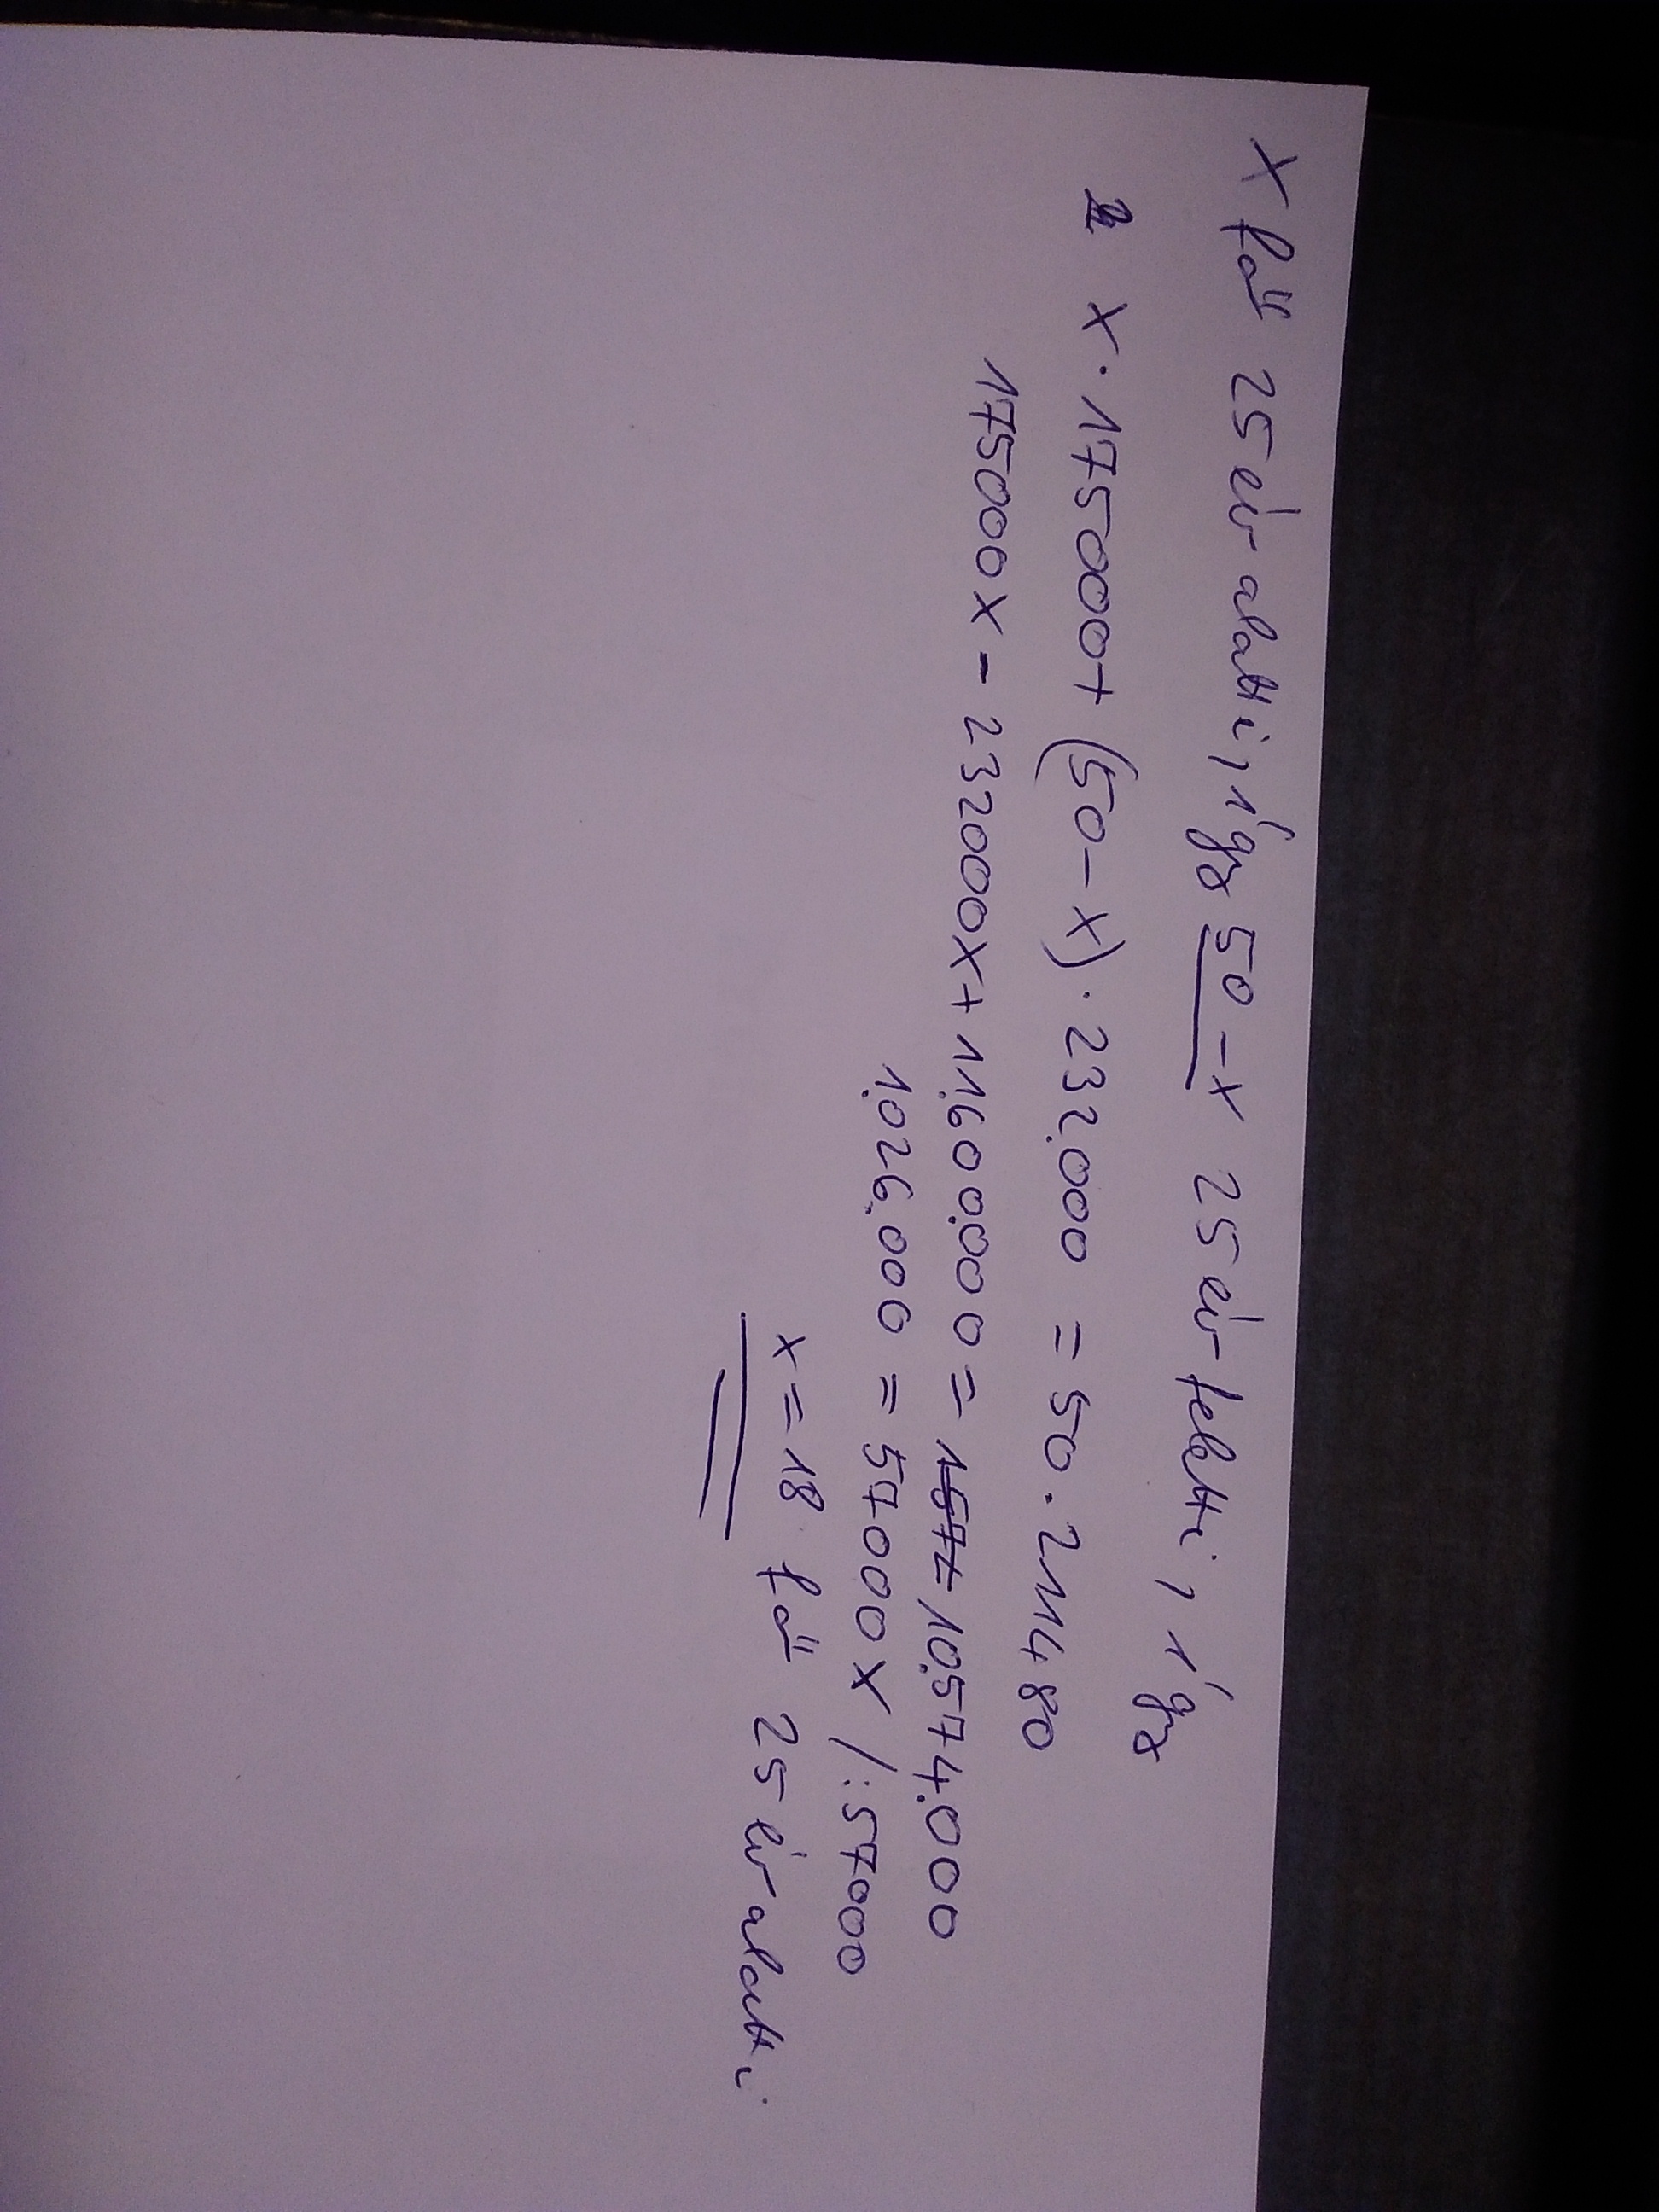 x fő 25 év alatti, így 50-x 25 év feletti, így
x · 175000 + (50-x) · 232.000 = 50 · 211480
175000x - 232000x + 11.600.000 = 10.574.000
1.026.000 = 57000x /:57000
x = 18 fő 25 év alatti.